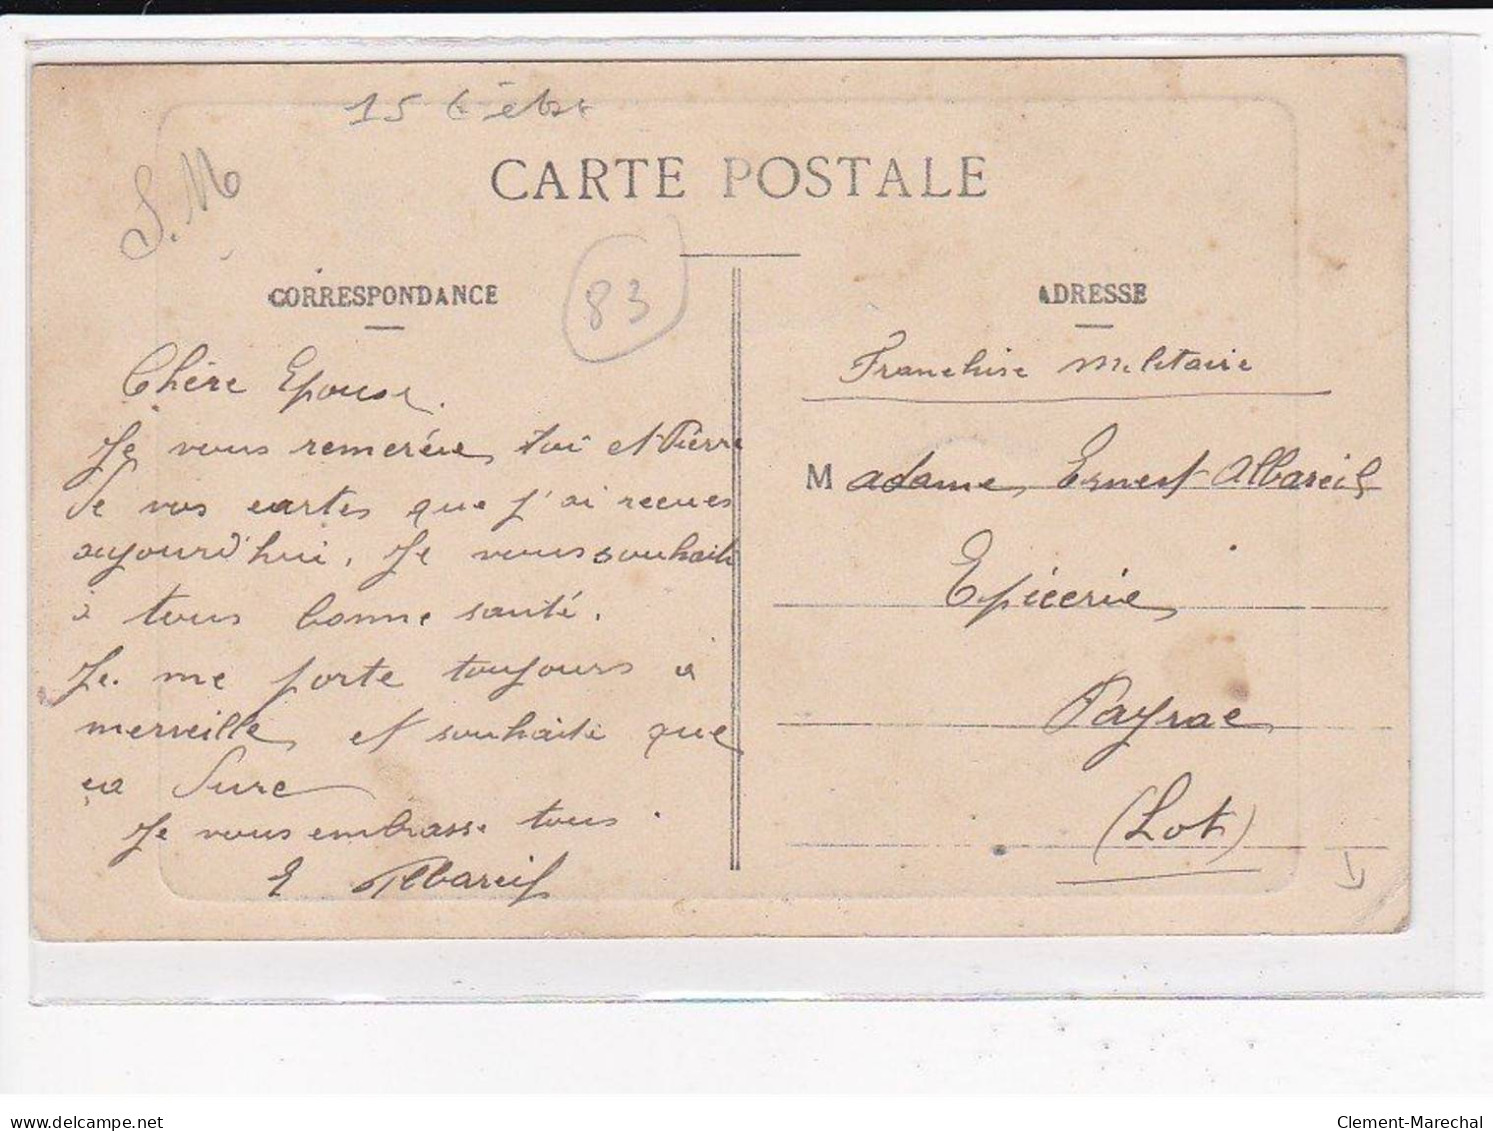 15
S.M
CARTE POSTALE
83
CORRESPONDANCE
Chère Epouse.
Je vous remercie, toi et Pierre
de vos cartes que j'ai recues
aujourd'hui. Je vous souhaite
à tous bonne santé.
Je me porte toujours à
merveille et souhaite que
ça dure
Je vous embrasse tous.
E Albareil
ADRESSE
Franchise Militaire
Madame Ernest Albareil
Epicerie
Payrac
(Lot)
delcampe.net
Clement-Marechal